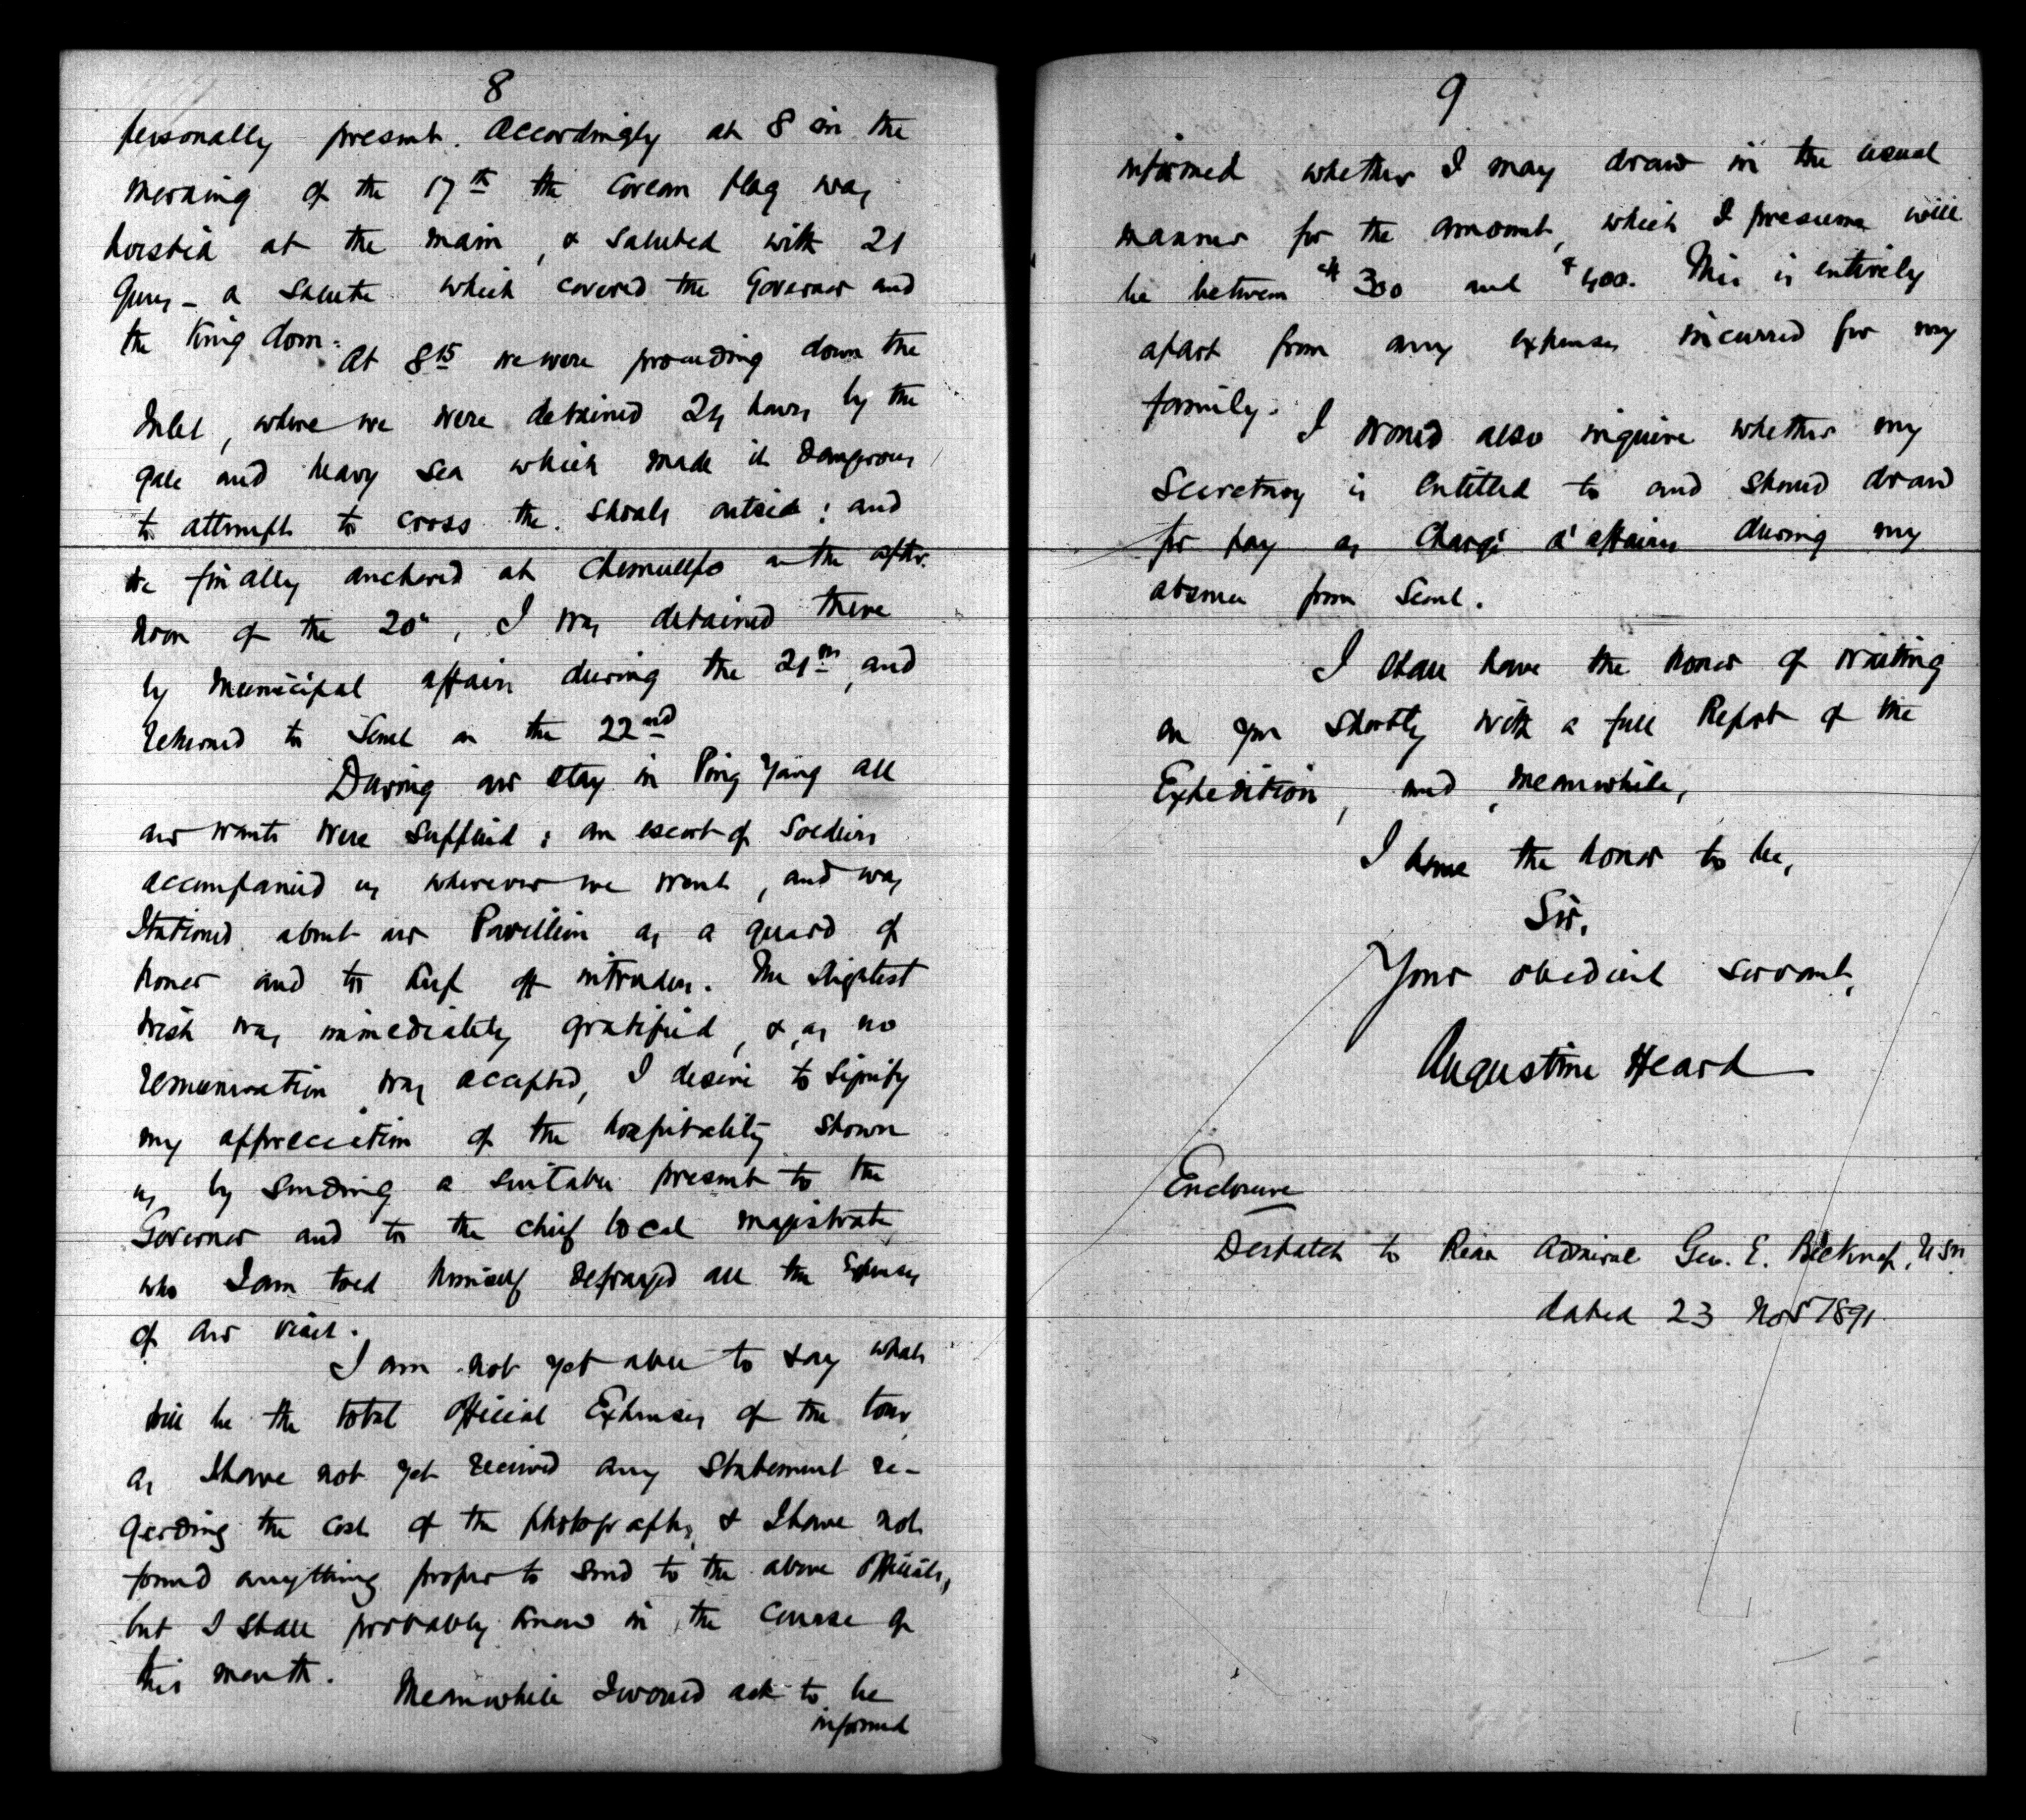 8
personally present. Accordingly at 8 in the
morning of the 17th the Corean flag was
hoisted at the main, & saluted with 21
guns – a salute which covered the Governor and
the Kingdom.
At 8 15 we were proceeding down the
Inlet, where we were detained 24 hours by the
gale and heavy sea which made it dangerous
to attempt to cross the shoals outside; and
we finally anchored at Chemulpo on the after-
noon of the 20th, I was detained there
by municipal affairs during the 21st, and
returned to Seoul on the 22nd
During our stay in Ping Yang all
our wants were supplied; an escort of soldiers
accompanied us wherever we went, and was
stationed about our Pavillion as a guard of
honor and to keep off intruders. The slightest
wish was immediately gratified, &, as no
remuneration was accepted, I desire to signify
my appreciation of the hospitality shown
us by sending a suitable present to the
Governor and to the chief local magistrate
who I am told himself defrayed all the expenses
of our visit.
I am not yet able to say what
will be the total official Expenses of the tour,
as I have not yet received any statement re-
garding the cost of the photographs, & I have not
found anything proper to send to the above officials,
but I shall probably know in the course of
this month.
Meanwhile I would ask to be
informed
9
informed whether I may draw in the usual
manner for the amount, which I presume will
be between $300 and $400. This is entirely
apart from any expenses incurred for my
family.
I would also inquire whether my
Secretary is entitled to and should draw
for pay as Chargé d'affaires during my
absence from Seoul.
I shall have the honor of writing
on you shortly with a full Report of the
Expedition, and, meanwhile,
I have the honor to be,
Sir,
Your obedient servant,
Augustine Heard
Enclosure
Despatch to Rear Admiral Geo. E. Belknap, USN
dated 23 Nov 1891.